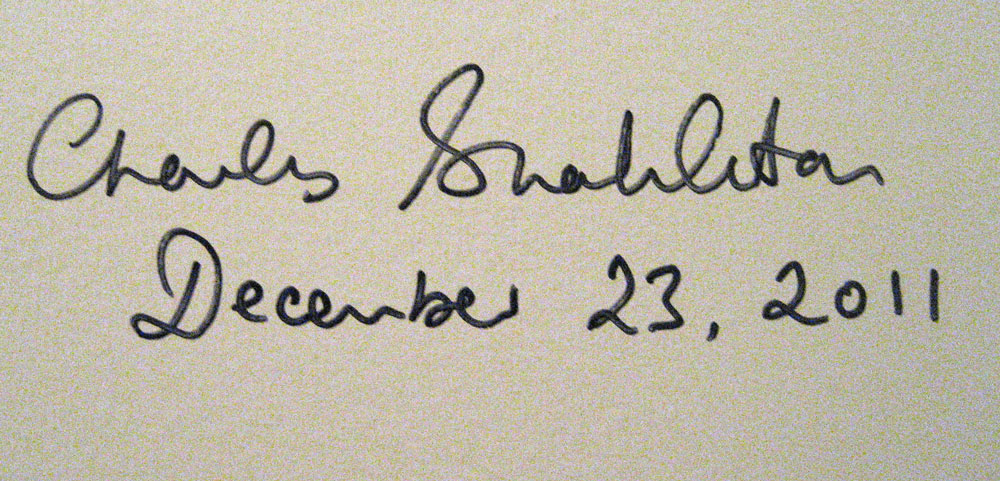 Charles Shackleton
December 23, 2011